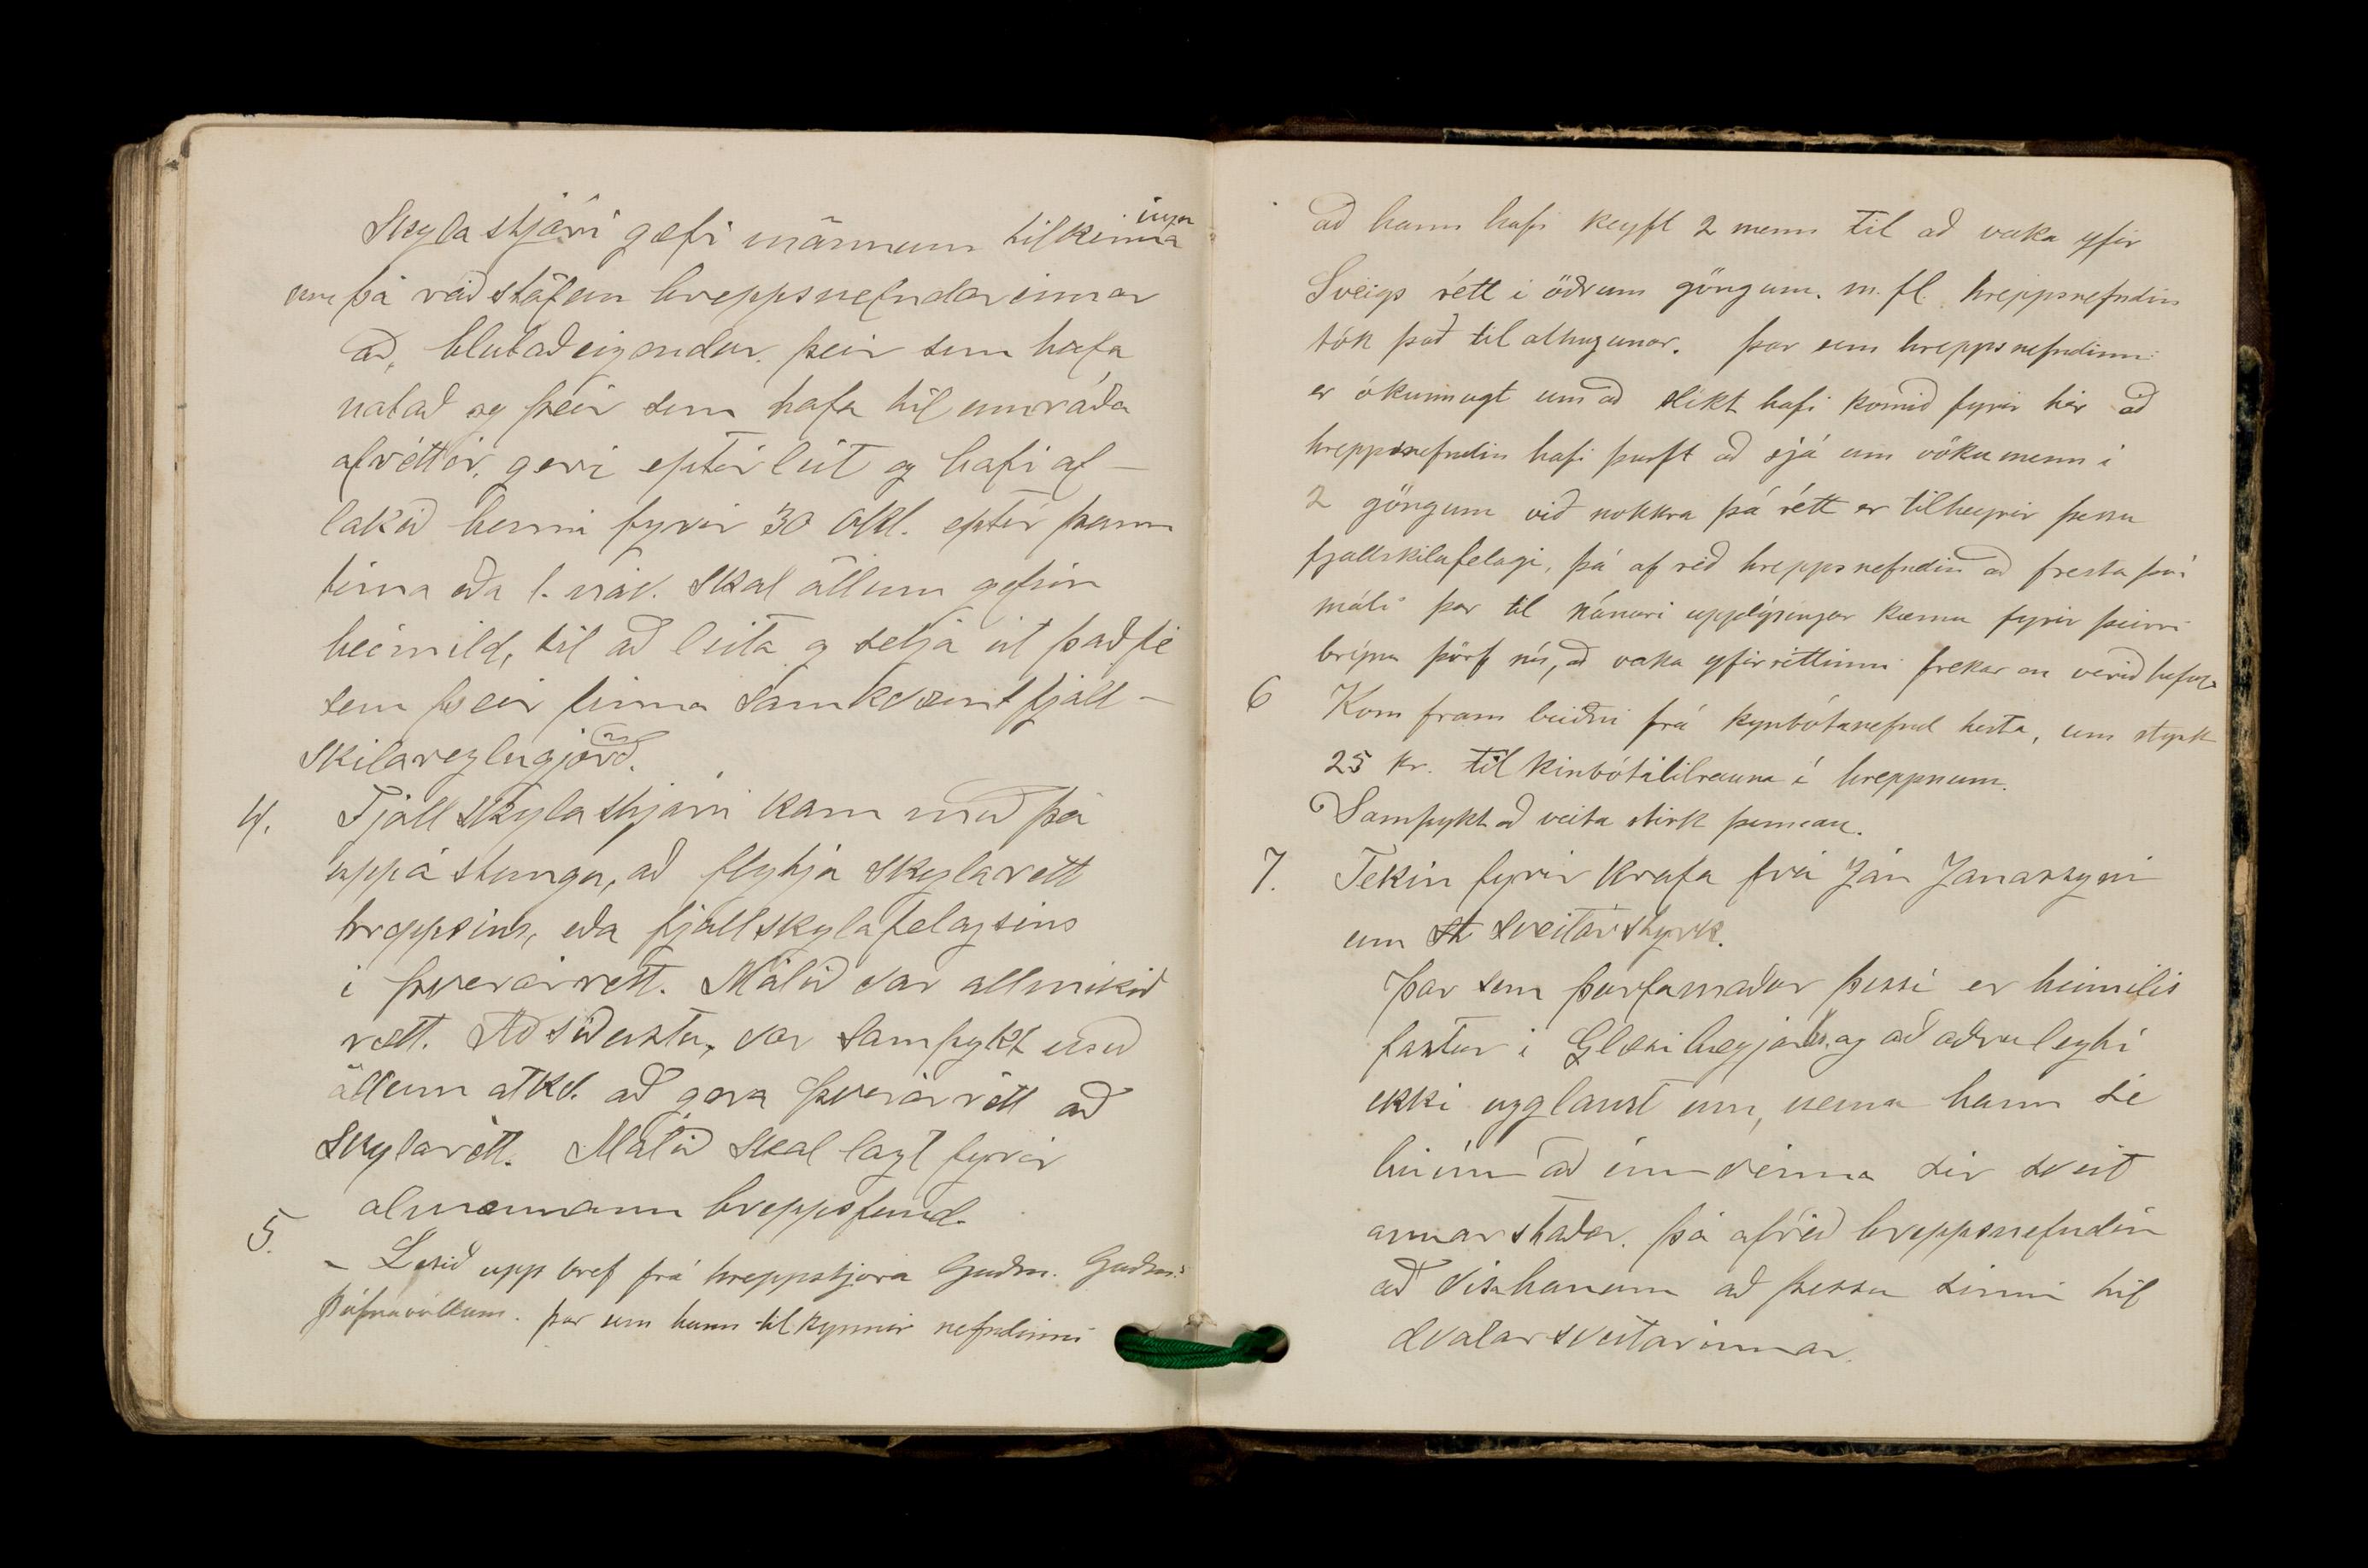 Skylastjóri gefi mönnum tilkinna
ingu
um þá ráðstöfun hreppsnefndarinnar
að, hlutaðeigendur. þeir sem hafa
notað og þeir sem hafa til umráða
afréttir, geri eptirleit og hafi af-
lokið henni fyrir 30 Okt. eptir þann
tíma eða 1. nóv. skal öllum gefin
heimild, til að leita og selja út það fé
sem þeir finna samkvæmt fjall-
skilareglugjörð.
4. Fjallskylastjóri kom með þá
uppástungu, að flytja skylarétt
hreppsins, eða fjallskylafelagsins
i þverárrett. Málið var allmikið
rætt. Að síðustu, var samþykt með
öllum atkv. að gera þverárrétt að
skylarétt. Málið skal lagt fyrir
almennann hreppsfund.
5. - Lesið upp bref frá hreppstjora Guðm. Guðm.
Þúfnavöllum. þar sem hann tilkynnir nefndinni
að hann hafi keyft 2 menn til að vaka yfir
Sveigs rétt i öðrum göngum. m. fl. hreppsnefndin
tók það til athugunar. Þar sem hreppsnefndinni
er ókunnugt um að slikt hafi komið fyrir hér að
hreppsnefndin hafi þurft að sjá um vökumenn i
2 göngum við nokkra þá rétt er tilheyrir þessu
fjallskilafelagi, þá af réð hreppsnefndin að fresta því
máli þar til nánari upplýsingar kæmu fyrir þeirri
brýnu þörf nú, að vaka yfir réttinni frekar en verið hefur
6 Kom fram beiðni frá kynbótanefnd hesta, um styrk
25 kr. til kinbótatilrauna í hreppnum.
Samþykt að veita stirk þennan.
7. Tekin fyrir krafa frá Jón Jónassyni
um st sveitarstyrk.
Þar sem þurfamaður þessi er heimilis
fastur i Glæsibæjarh. og að aðru leyti
ekki ugglaust um, nema hann sé
búinn að innvinna sér sveit
annarstaðar. þá afréð hreppsnefndin
að vísa hanum að þessu sinni til
dvalarsveitarinnar.